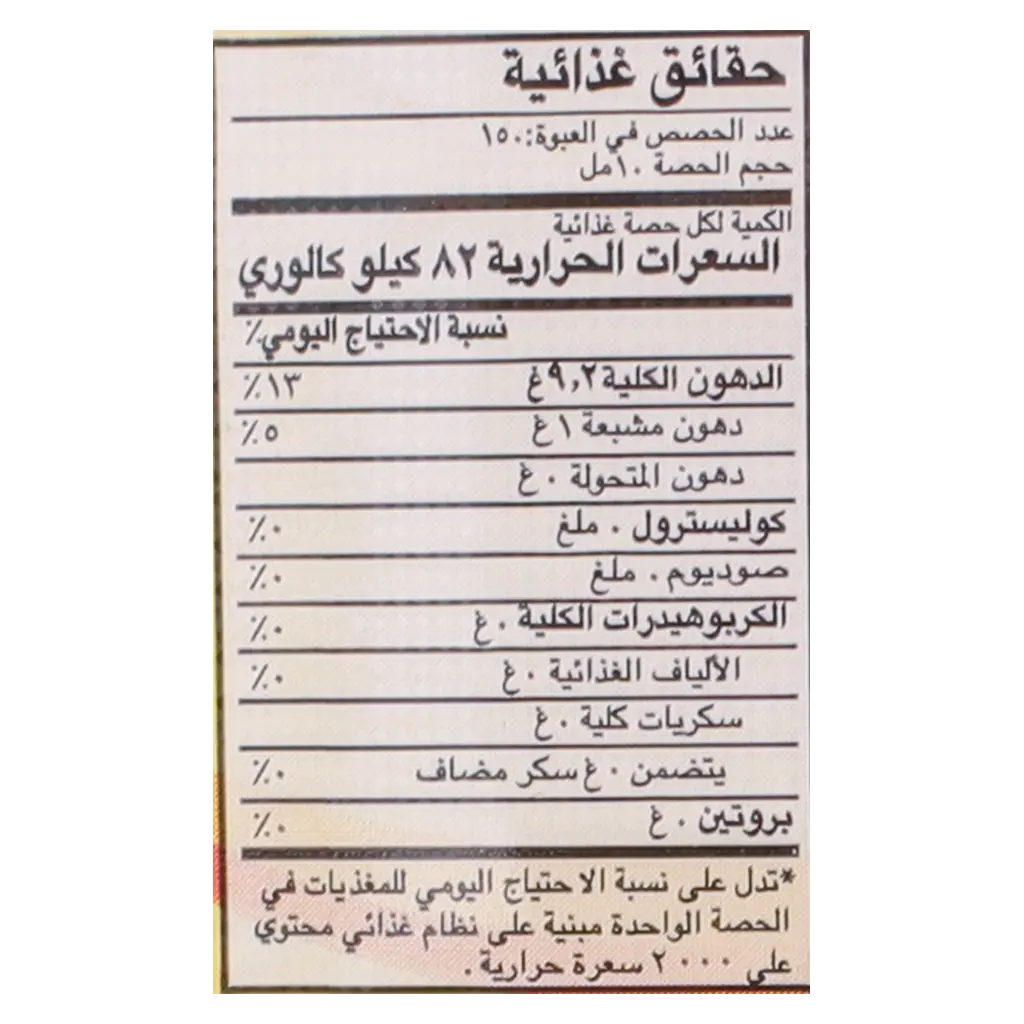 حقائق غذائية
عدد الحصص في العبوة: ١٥٠
حجم الحصة ١٠مل
الكمية لكل حصة غذائية
السعرات الحرارية ٨٢ كيلو كالوري
نسبة الاحتياج اليومي٪
الدهون الكلية ٩,٢غ ١٣٪
دهون مشبعة ١غ ٥٪
دهون المتحولة ٠غ
كوليسترول ٠ ملغ ٠٪
صوديوم ٠ ملغ ٠٪
الكربوهيدرات الكلية ٠غ ٠٪
الألياف الغذائية ٠غ ٠٪
سكريات كلية ٠غ
يتضمن ٠غ سكر مضاف ٠٪
بروتين ٠غ ٠٪
*تدل على نسبة الاحتياج اليومي للمغذيات في
الحصة الواحدة مبنية على نظام غذائي محتوي
على ٢٠٠٠ سعرة حرارية.